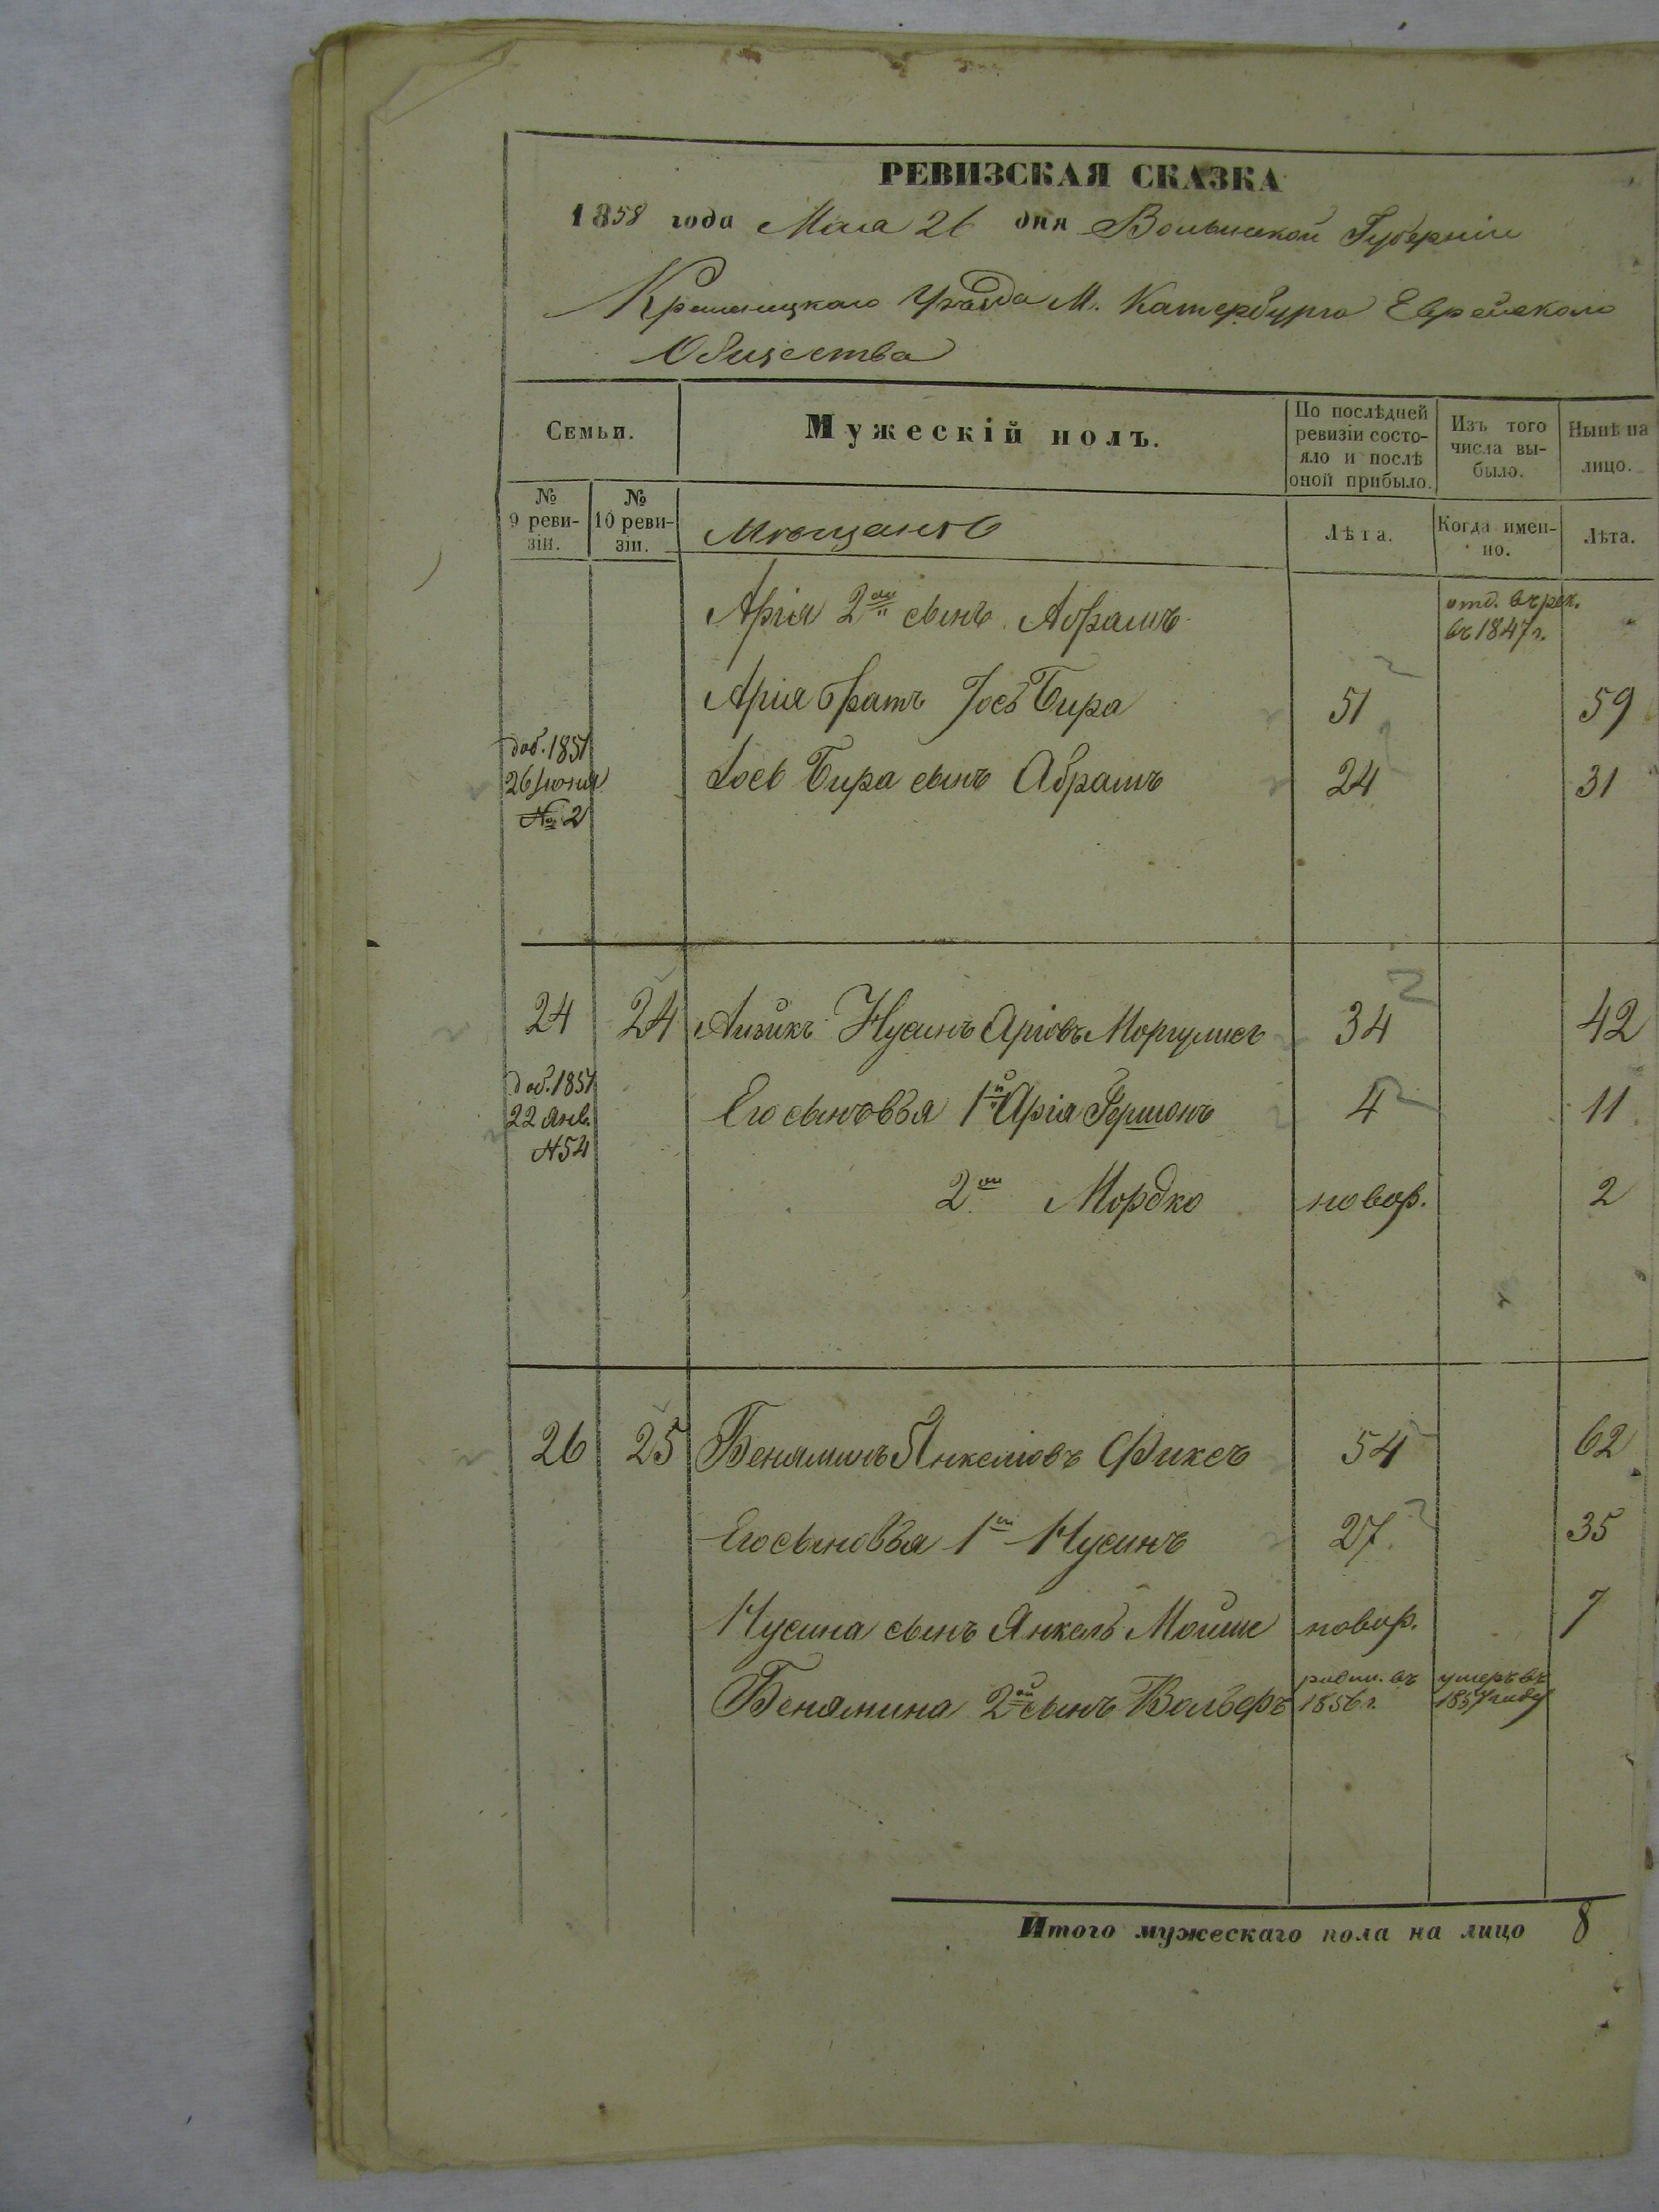 РЕВИЗСКАЯ СКАЗКА
1858 года Мая 26 дня Волынской Губернiи
Кременецкаго Уѣзда М. Катербурга Еврейскаго
Общества
Семьи.
Мужескiй полъ.
По послѣдней ревизiи состо-
яло и послѣ
оной прибыло.
Изъ того
числа вы-
было.
Нынѣ на
лицо.
№
9 реви-
зiи.
№
10 реви-
зiи.
Мѣщанъ
Лѣта.
Когда имен-
но.
Лѣта.
Арiя 2ой сынъ Абрамъ отд. въ рек.
въ 1847 г.
Арiя братъ Iосъ Бира 51 59
доб. 1851
26 Iюня
№ 2
Iось Бира сынъ Абрамъ 24 31
24 24 Айзикъ Нусинъ Арiовъ Моргулисъ 34 42
доб. 1851
22 Янв.
№54
Его сыновья 1й Арiя Гершонъ 4 11
2ой Мордко новор. 2
26 25 Беняминъ Янкелiовъ Фиксъ 54 62
Его сыновья 1й Нусинъ 27 35
Нусина сынъ Янкель Мойше новор. 7
Бенямина 2ой сынъ Вольфъ родил. въ
1856 г. умеръ въ
1857 году
Итого мужескаго пола на лицо 8